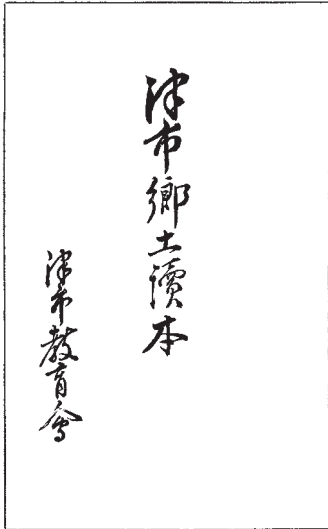 津市郷土讀本
津市教育會